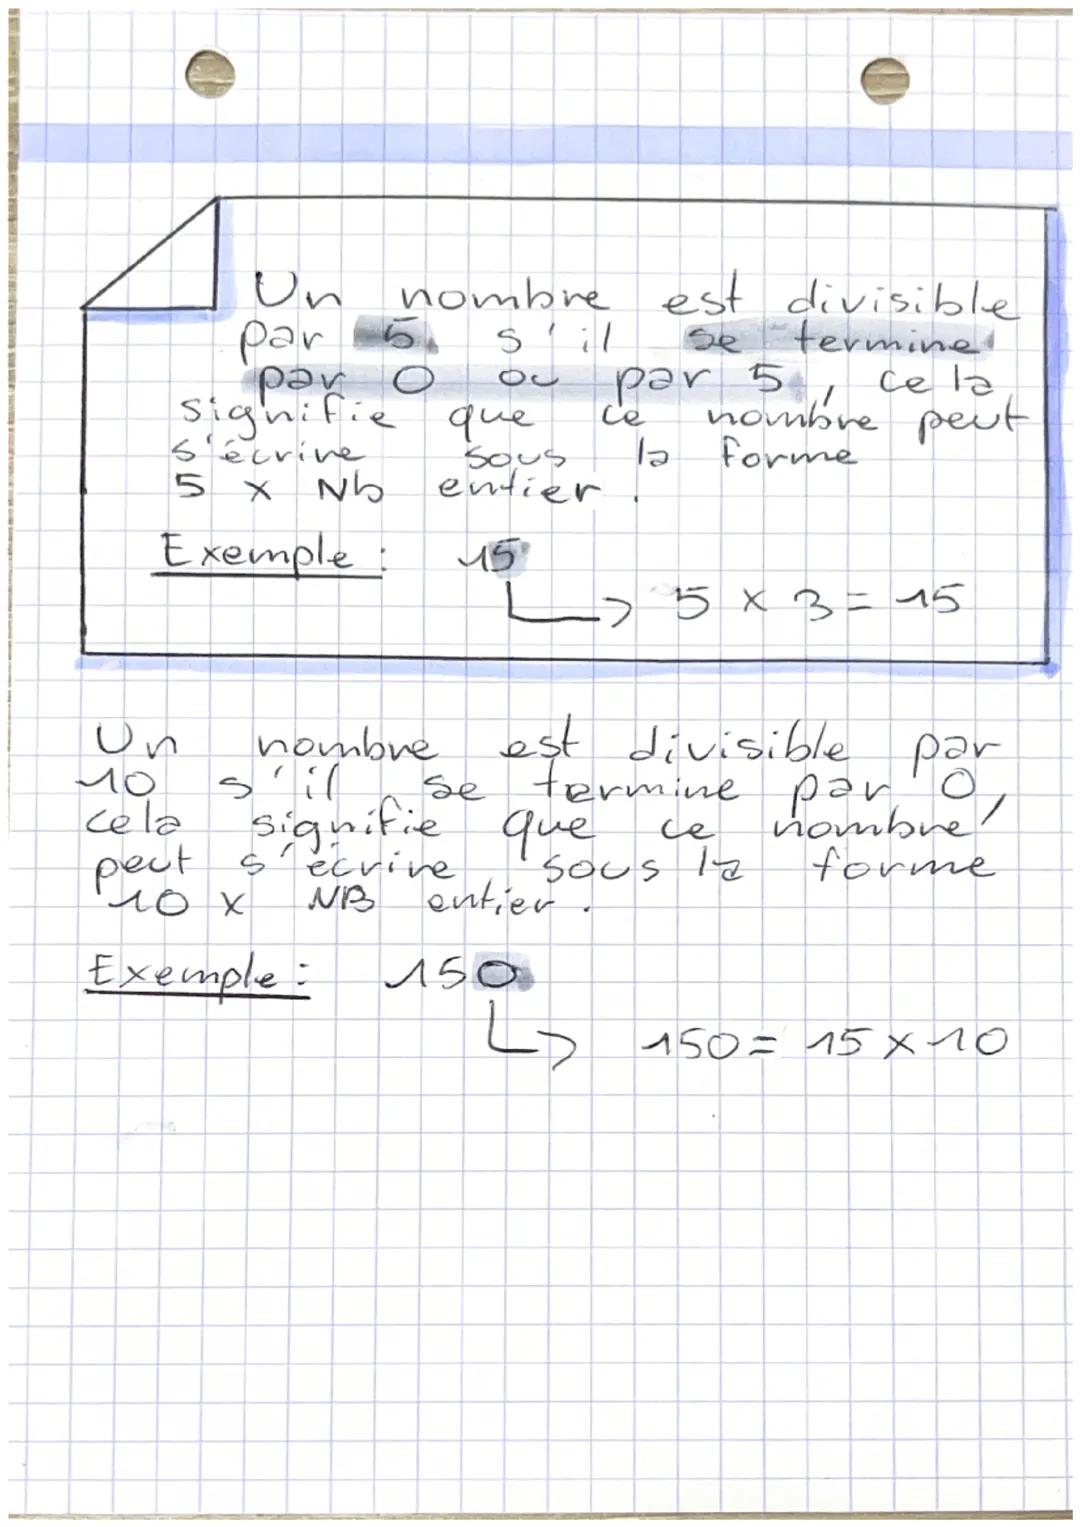 Un nombre est divisible
par 5 s'il se termine
par 0 ou par 5, cela
signifie que ce nombre peut
s'écrire sous la forme
5 x Nb entier.
Exemple : 15
5 x 3 = 15
Un nombre est divisible par
10 s'il se termine par 0,
cela signifie que ce nombre
peut s'écrire sous la forme
10 x NB entier.
Exemple : 150
150 = 15 x 10